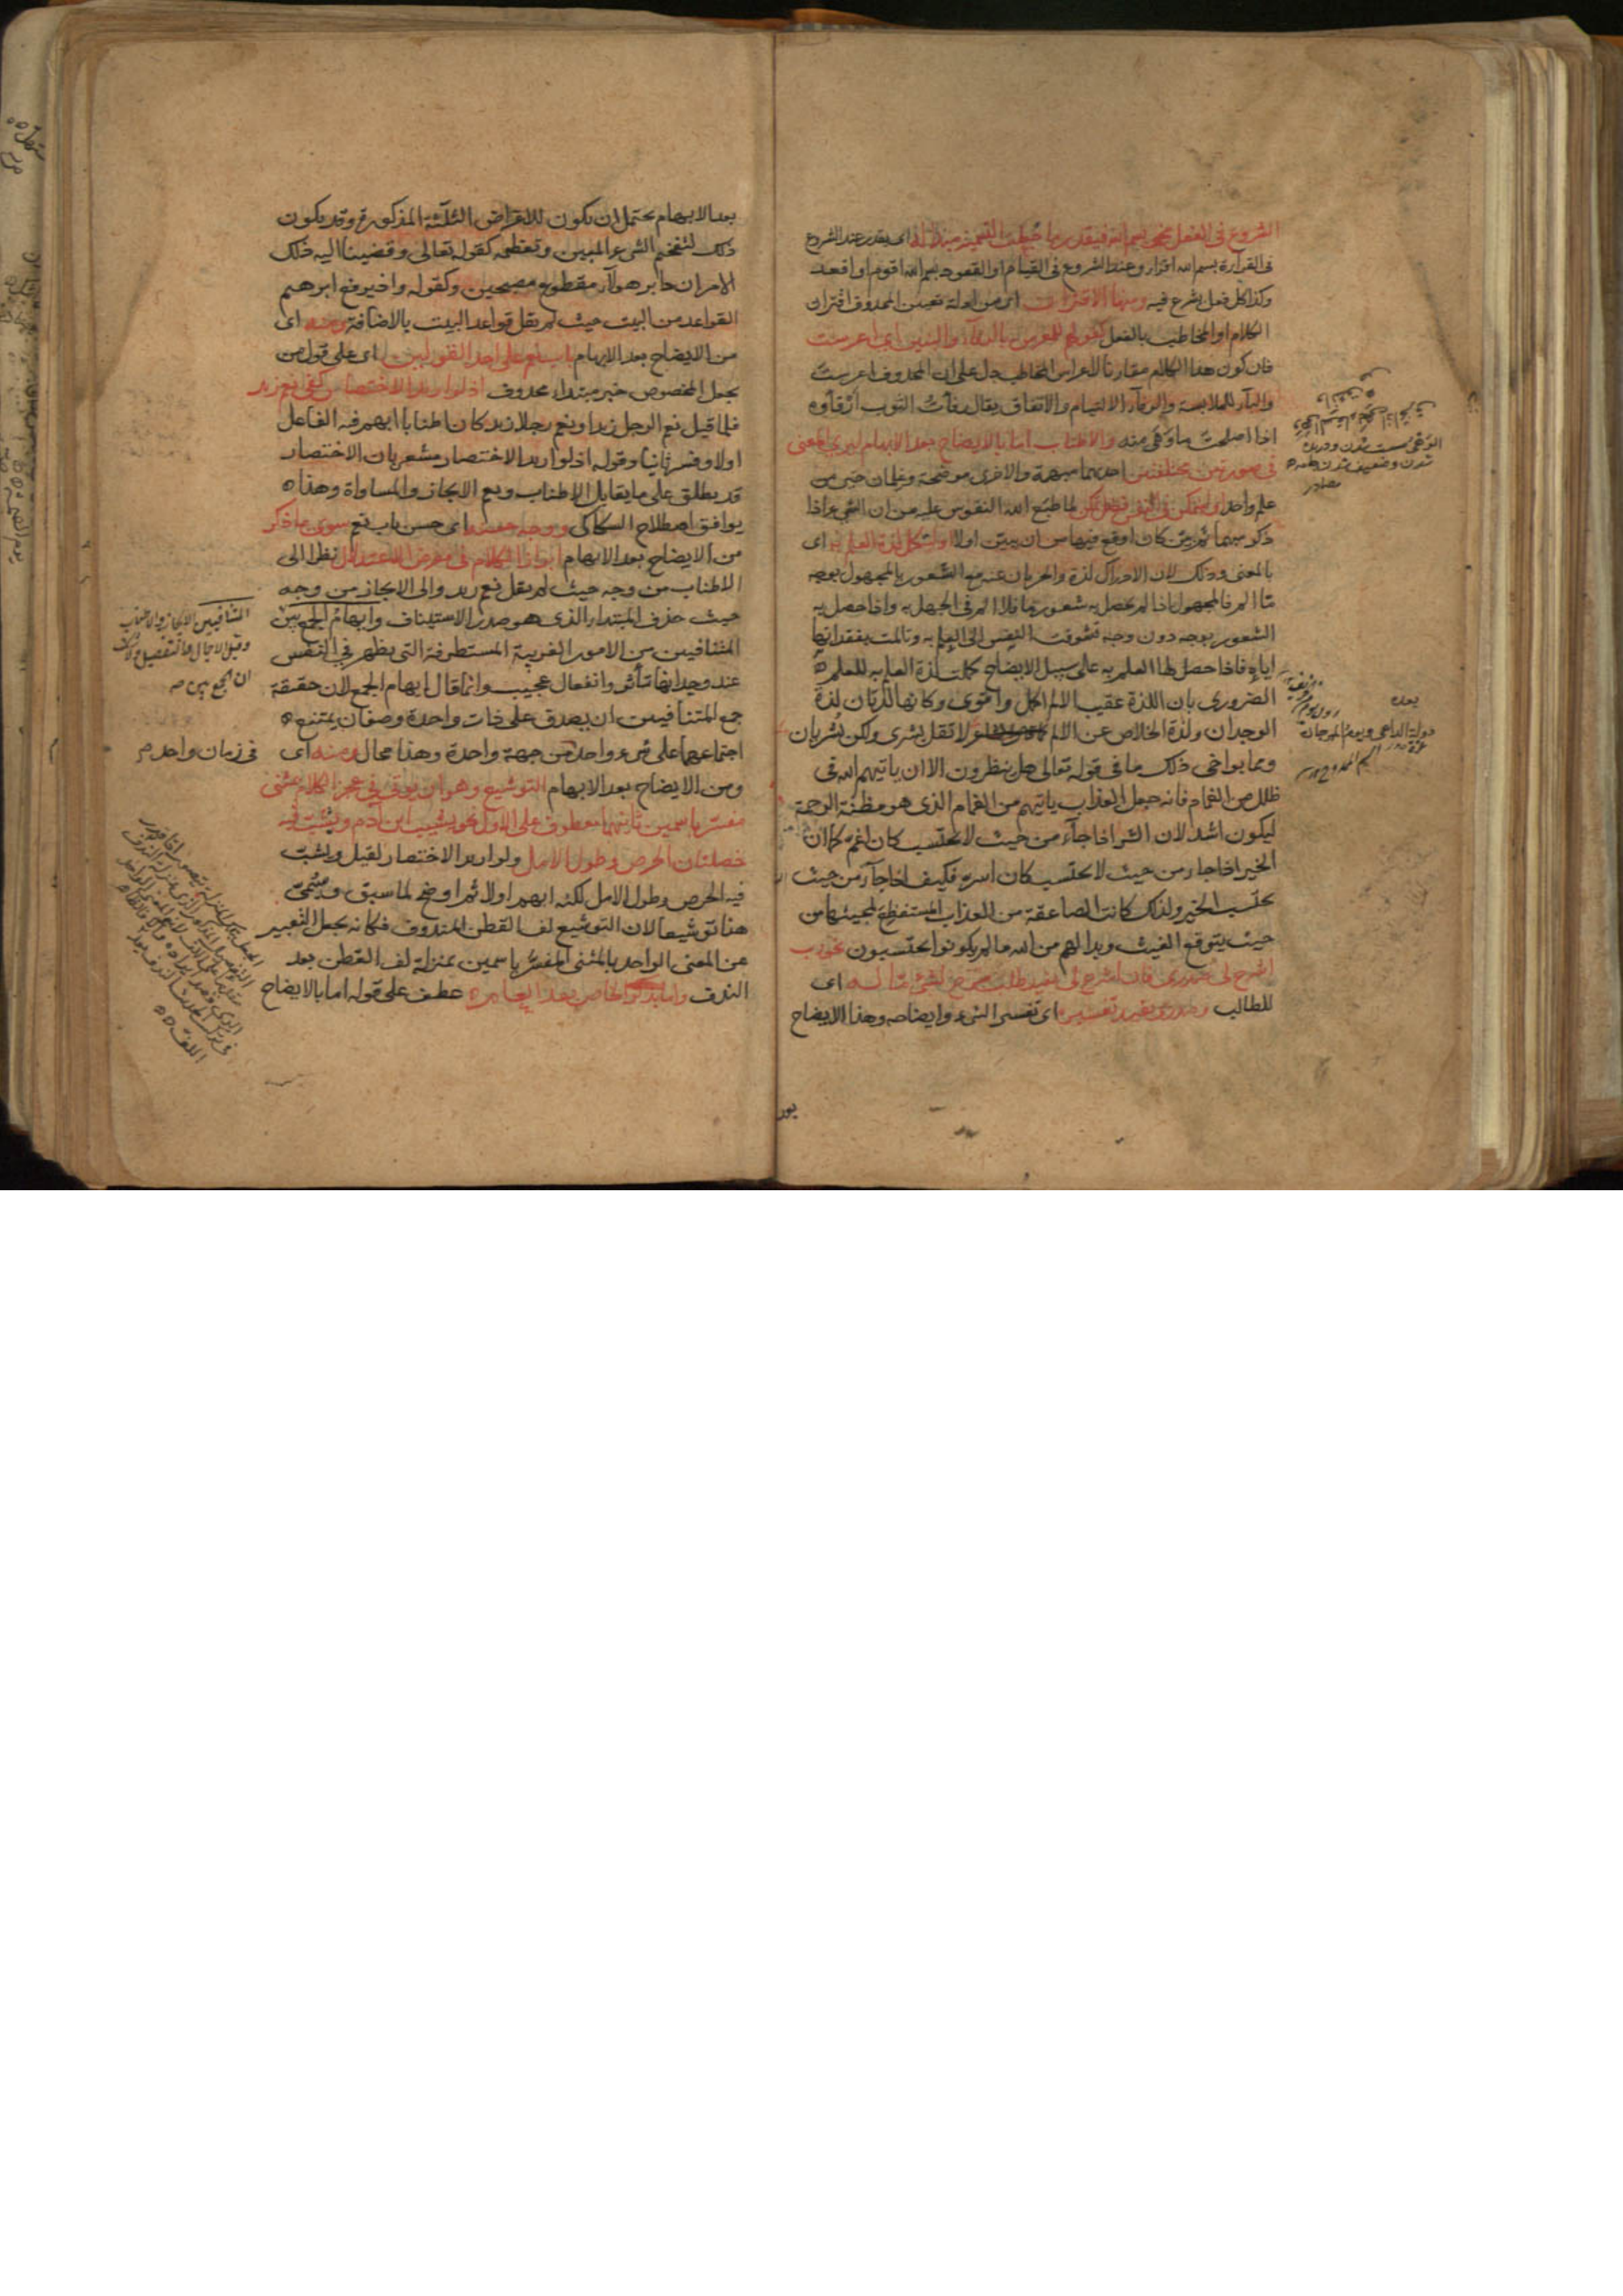 الشروع فى الفعل نحو بسم الله فيقدر ما جعلت التسمية مبتدأ له اى يقدر عند الشروع
فى القرآءة بسم الله اقراء وعند الشروع فى القيام او القعود بسم الله اقوم او اقعد
وكذا كل فعل يشرع فيه ومنها الاقتران اى من ادلة تعيين المحذوف اقتران
الكلام او المخاطب بالفعل كقولهم للمعرس بالرفآء والبنين اى اعرست
فان كون هذا الكلام مقارنا لاعراس المخاطب دل على ان المحذوف اعرست
والبآء للملابسة والرفآء الالتيام والاتفاق يقال رفأت الثوب ارفاؤه
اذا اصلحت ما وهى منه والاطناب اما بالايضاح بعد الابهام ليرى المعنى
فى صورتين مختلفتين احديهما مبهمة والاخرى موضحة وعلمان خير من
علم واحد او ليتمكن فى النفس فضل تمكن لما طبع الله النفوس عليه من ان الشئ اذا
ذكر مبهما ثم بين كان اوقع فيها من ان يبين اولا او لتكمل لذة العلم به اى
بالمعنى وذلك لان الادراك لذة والحرمان عنه مع الشعور بالمجهول بوجه
ما الم فالمجهول اذا لم يحصل به شعور ما فلا الم فى الجهل به واذا حصل به
الشعور بوجه دون وجه تشوقت النفس الى العلم به وتألمت بفقدانها
اياه فاذا حصل لها العلم به على سبيل الايضاح كملت لذة العلم به للعلم
الضرورى بان اللذة عقيب الالم اكمل واقوى وكانها لذتان لذة
الوجدان ولذة الخلاص عن الالم لا تقل بشرى ولكن بشريان
ومما يواخى ذلك ما فى قوله تعالى هل ينظرون الا ان ياتيهم الله فى
ظلل من الغمام فانه جعل العذاب ياتيهم من الغمام الذى هو مظنة الرحمة
ليكون اشد لان الشر اذا جآء من حيث لا يحتسب كان اغم كما ان
الخير اذا جاء من حيث لا يحتسب كان اسر فكيف اذا جآء من حيث
يحتسب الخير ولذلك كانت الصاعقة من العذاب المستفظع لمجيئها من
حيث يتوقع الغيث وبدا لهم من الله ما لم يكونوا يحتسبون نحو رب
اشرح لى صدرى فان اشرح لى يفيد طلب شرح لشئ ما له اى
للطالب وصدرى يفيد تفسيره اى تفسير الشئ وايضاحه وهذا الايضاح
بعد الابهام يحتمل ان يكون للاغراض الثلثة المذكورة وقد يكون
ذلك لتفخيم الشئ المبين وتعظيمه كقوله تعالى وقضينا اليه ذلك
الامر ان دابر هولآء مقطوع مصبحين وكقوله واذ يرفع ابرهيم
القواعد من البيت حيث لم يقل قواعد البيت بالاضافة ومنه اى
من الايضاح بعد الابهام باب نعم على احد القولين اى على قول من
يجعل المخصوص خبر مبتداء محذوف اذ لو اريد الاختصار كفى نعم زيد
فلما قيل نعم الرجل زيد او نعم رجلا زيد كان اطنابا ابهم فيه الفاعل
اولا وفسر ثانيا وقوله اذ لو اريد الاختصار مشعر بان الاختصار
قد يطلق على ما يقابل الاطناب ويعم الايجاز والمساواة وهذا
يوافق اصطلاح السكاكى ووجه حسنه اى حسن باب نعم سوى ما ذكر
من الايضاح بعد الابهام ابراز الكلام فى معرض الاعتدال نظرا الى
الاطناب من وجه حيث لم يقل نعم زيد والى الايجاز من وجه
حيث حذف المبتداء الذى هو صدر الاستيناف وايهام الجمع بين
المتنافيين من الامور الغريبة المستطرفة التى يظهر فى النفس
عند وجدانها تأثر وانفعال عجيب وانما قال ايهام الجمع لان حقيقة
جمع المتنافيين ان يصدق على ذات واحدة وصفان يمتنع
اجتماعهما على شئ واحد من جهة واحدة وهذا محال ومنه اى
ومن الايضاح بعد الابهام التوشيع وهو ان يؤتى فى عجز الكلام بمثنى
مفسر باسمين ثانيهما معطوف على الاول نحو يشيب ابن آدم ويشب فيه
خصلتان الحرص وطول الامل ولو اريد الاختصار لقيل ويشب
فيه الحرص وطول الامل لكنه ابهم اولا ثم اوضح لما سبق ويسمى
هذا توشيعا لان التوشيع لف القطن المندوف فكانه يجعل التعبير
عن المعنى الواحد بالمثنى المفسر باسمين بمنزلة لف القطن بعد
الندف واما بذكر الخاص بعد العام عطف على قوله اما بالايضاح
المتنافيين الايجاز والاطناب
وقيل الاجمال والتفصيل
ان الجمع بين
فى زمان واحد